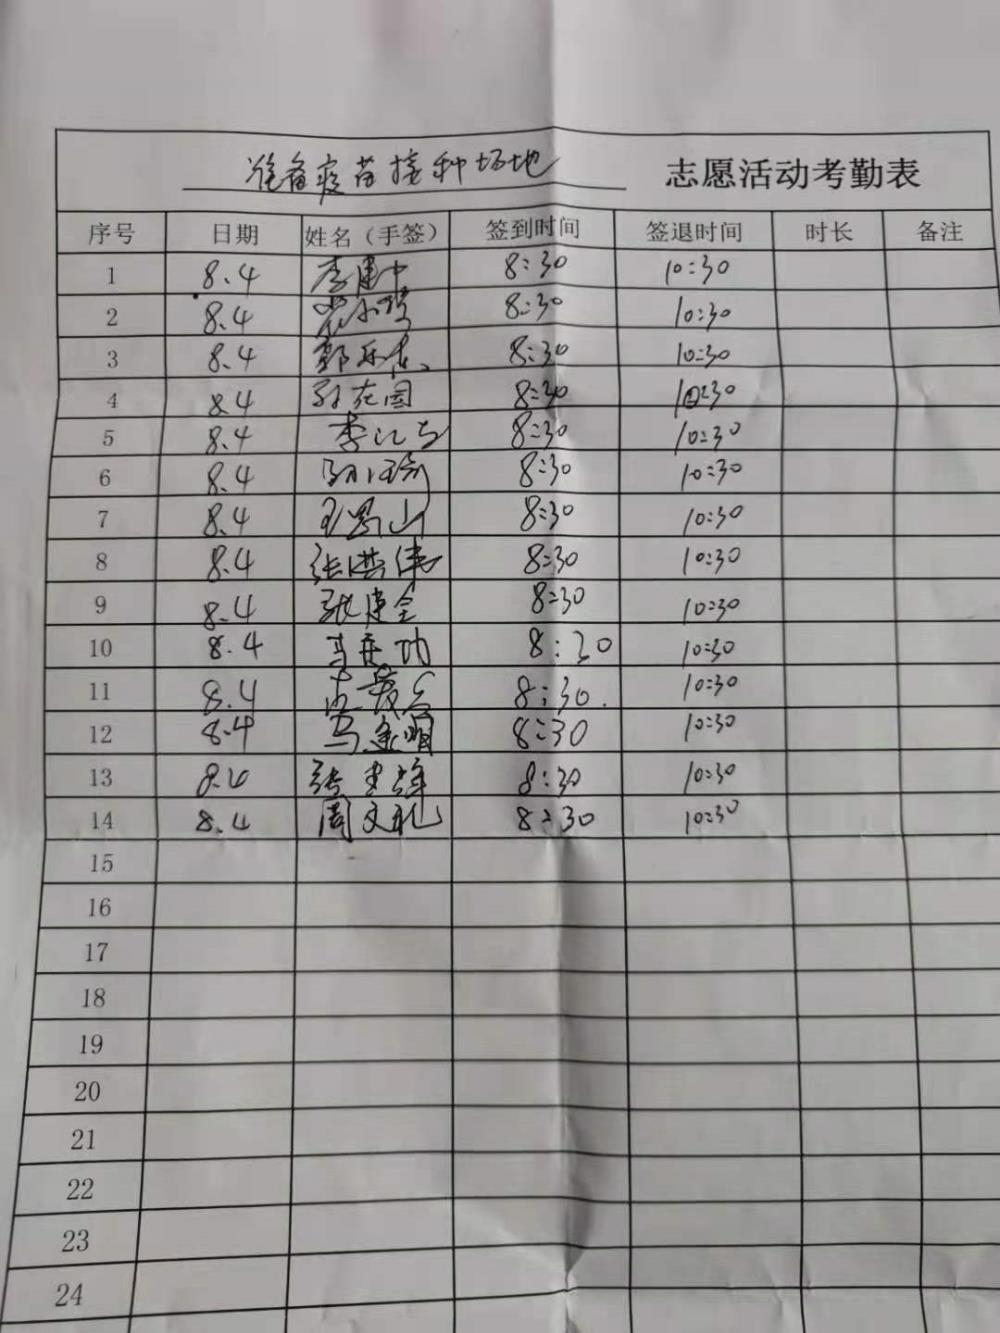 准备疫苗接种场地 志愿活动考勤表
序号 日期 姓名（手签） 签到时间 签退时间 时长 备注
1 8.4 李建中 8:30 10:30
2 8.4 8:30 10:30
3 8.4 8:30 10:30
4 8.4 孙花园 8:30 10:30
5 8.4 8:30 10:30
6 8.4 8:30 10:30
7 8.4 8:30 10:30
8 8.4 张洪伟 8:30 10:30
9 8.4 张建全 8:30 10:30
10 8.4 8:30 10:30
11 8.4 8:30. 10:30
12 8.4 8:30 10:30
13 8.4 8:30 10:30
14 8.4 周文礼 8:30 10:30
15
16
17
18
19
20
21
22
23
24